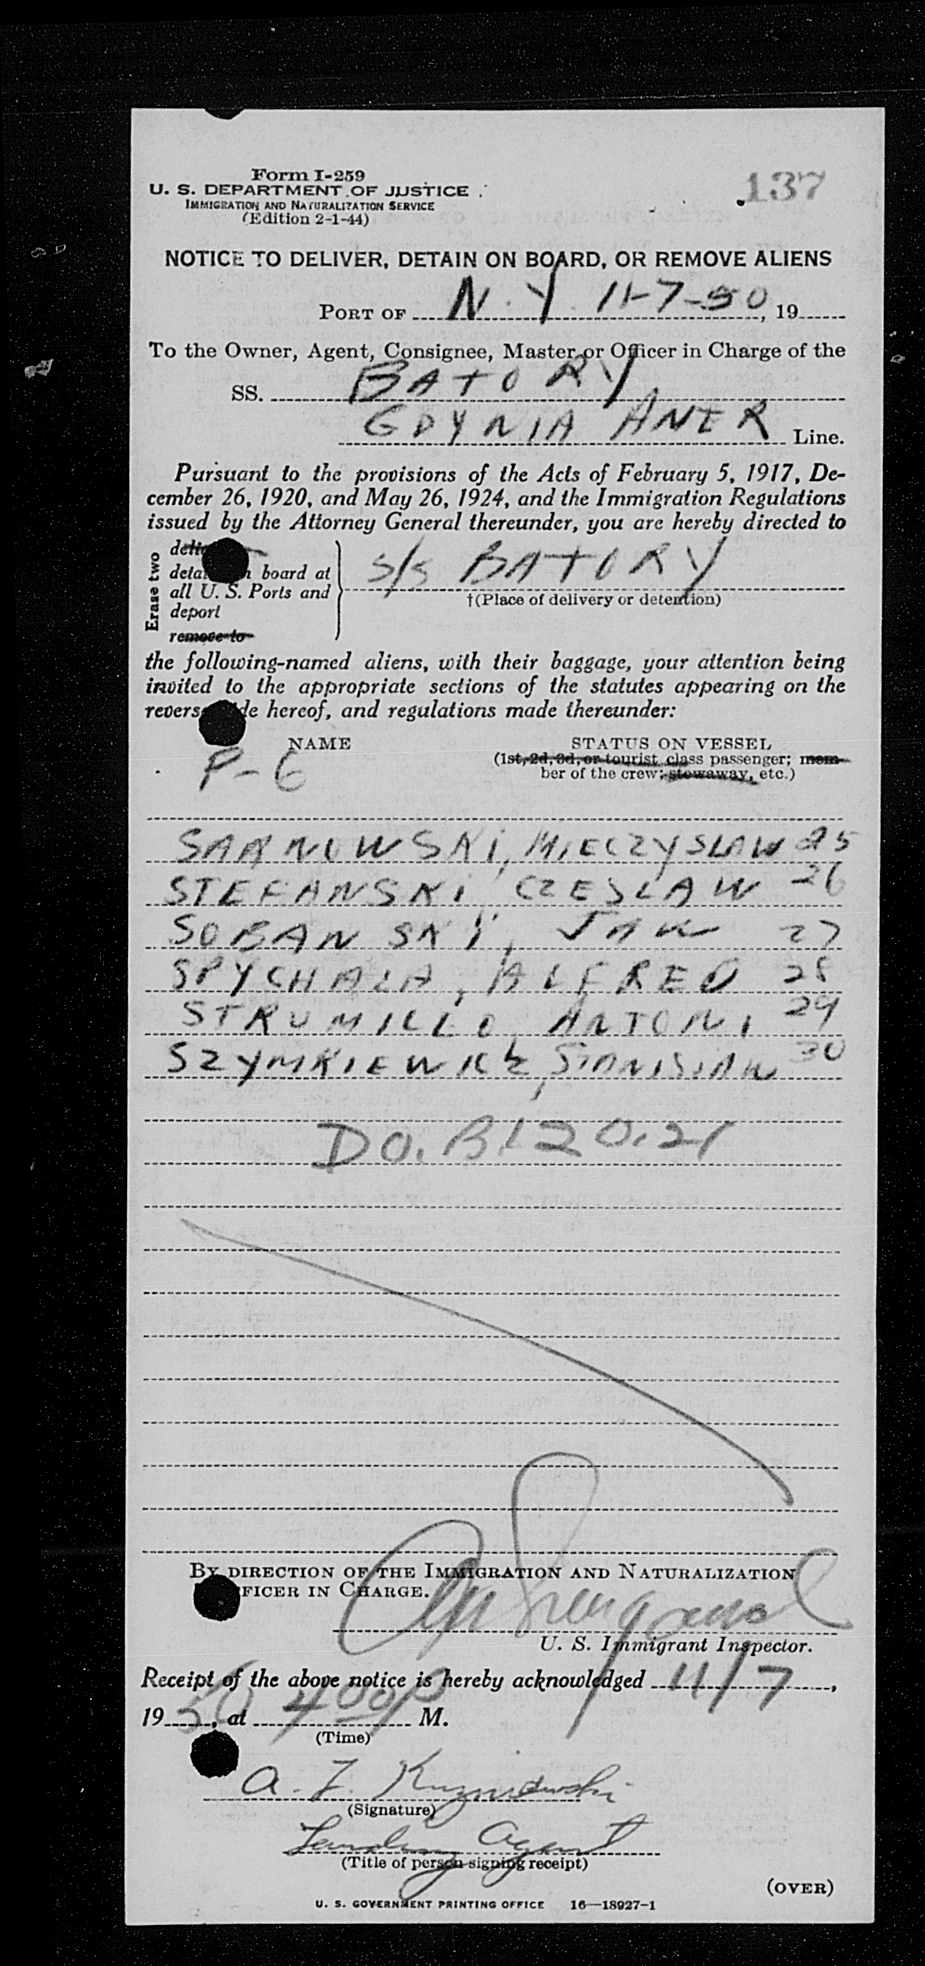 Form I-259
U. S. DEPARTMENT OF JUSTICE
IMMIGRATION AND NATURALIZATION SERVICE
(Edition 2-1-44)
137
NOTICE TO DELIVER, DETAIN ON BOARD, OR REMOVE ALIENS
PORT OF N.Y. 11-7-50, 19
To the Owner, Agent, Consignee, Master or Officer in Charge of the
SS. BATORY
GDYNIA AMER Line.
Pursuant to the provisions of the Acts of February 5, 1917, De-
cember 26, 1920, and May 26, 1924, and the Immigration Regulations
issued by the Attorney General thereunder, you are hereby directed to
Erase two
board at
all U. S. Ports and
deport
remove to
S/S BATORY
†(Place of delivery or detention)
the following-named aliens, with their baggage, your attention being
invited to the appropriate sections of the statutes appearing on the
hereof, and regulations made thereunder:
NAME STATUS ON VESSEL
(1st, 2d, 3d, or tourist class passenger; mem-
ber of the crew; stowaway, etc.)
P-6
SARNOWSKI, MIECZYSLAW 25
STEFANSKI CZESLAW 26
SOBANSKI, JAN 27
SPYCHALA, ALFRED 28
STRUMILLO ANTONI 29
SZYMKIEWICZ, STANISLAW 30
DO. B120.21
BY DIRECTION OF THE IMMIGRATION AND NATURALIZATION
OFFICER IN CHARGE.
U. S. Immigrant Inspector.
Receipt of the above notice is hereby acknowledged 11/7,
1950, at 400P M.
(Time)
A. Z.
(Signature)
Landing Agent
(Title of person signing receipt)
(OVER)
U. S. GOVERNMENT PRINTING OFFICE 16—18927-1